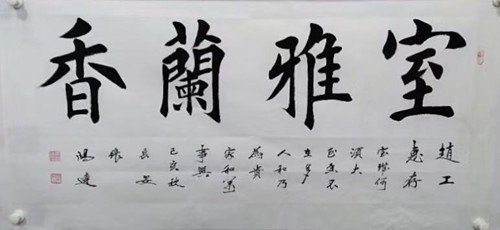 室雅蘭香
趙工
惠存
室雅何
須大
花香不
在多
人和乃
為貴
家和萬
事興
己亥秋
長安